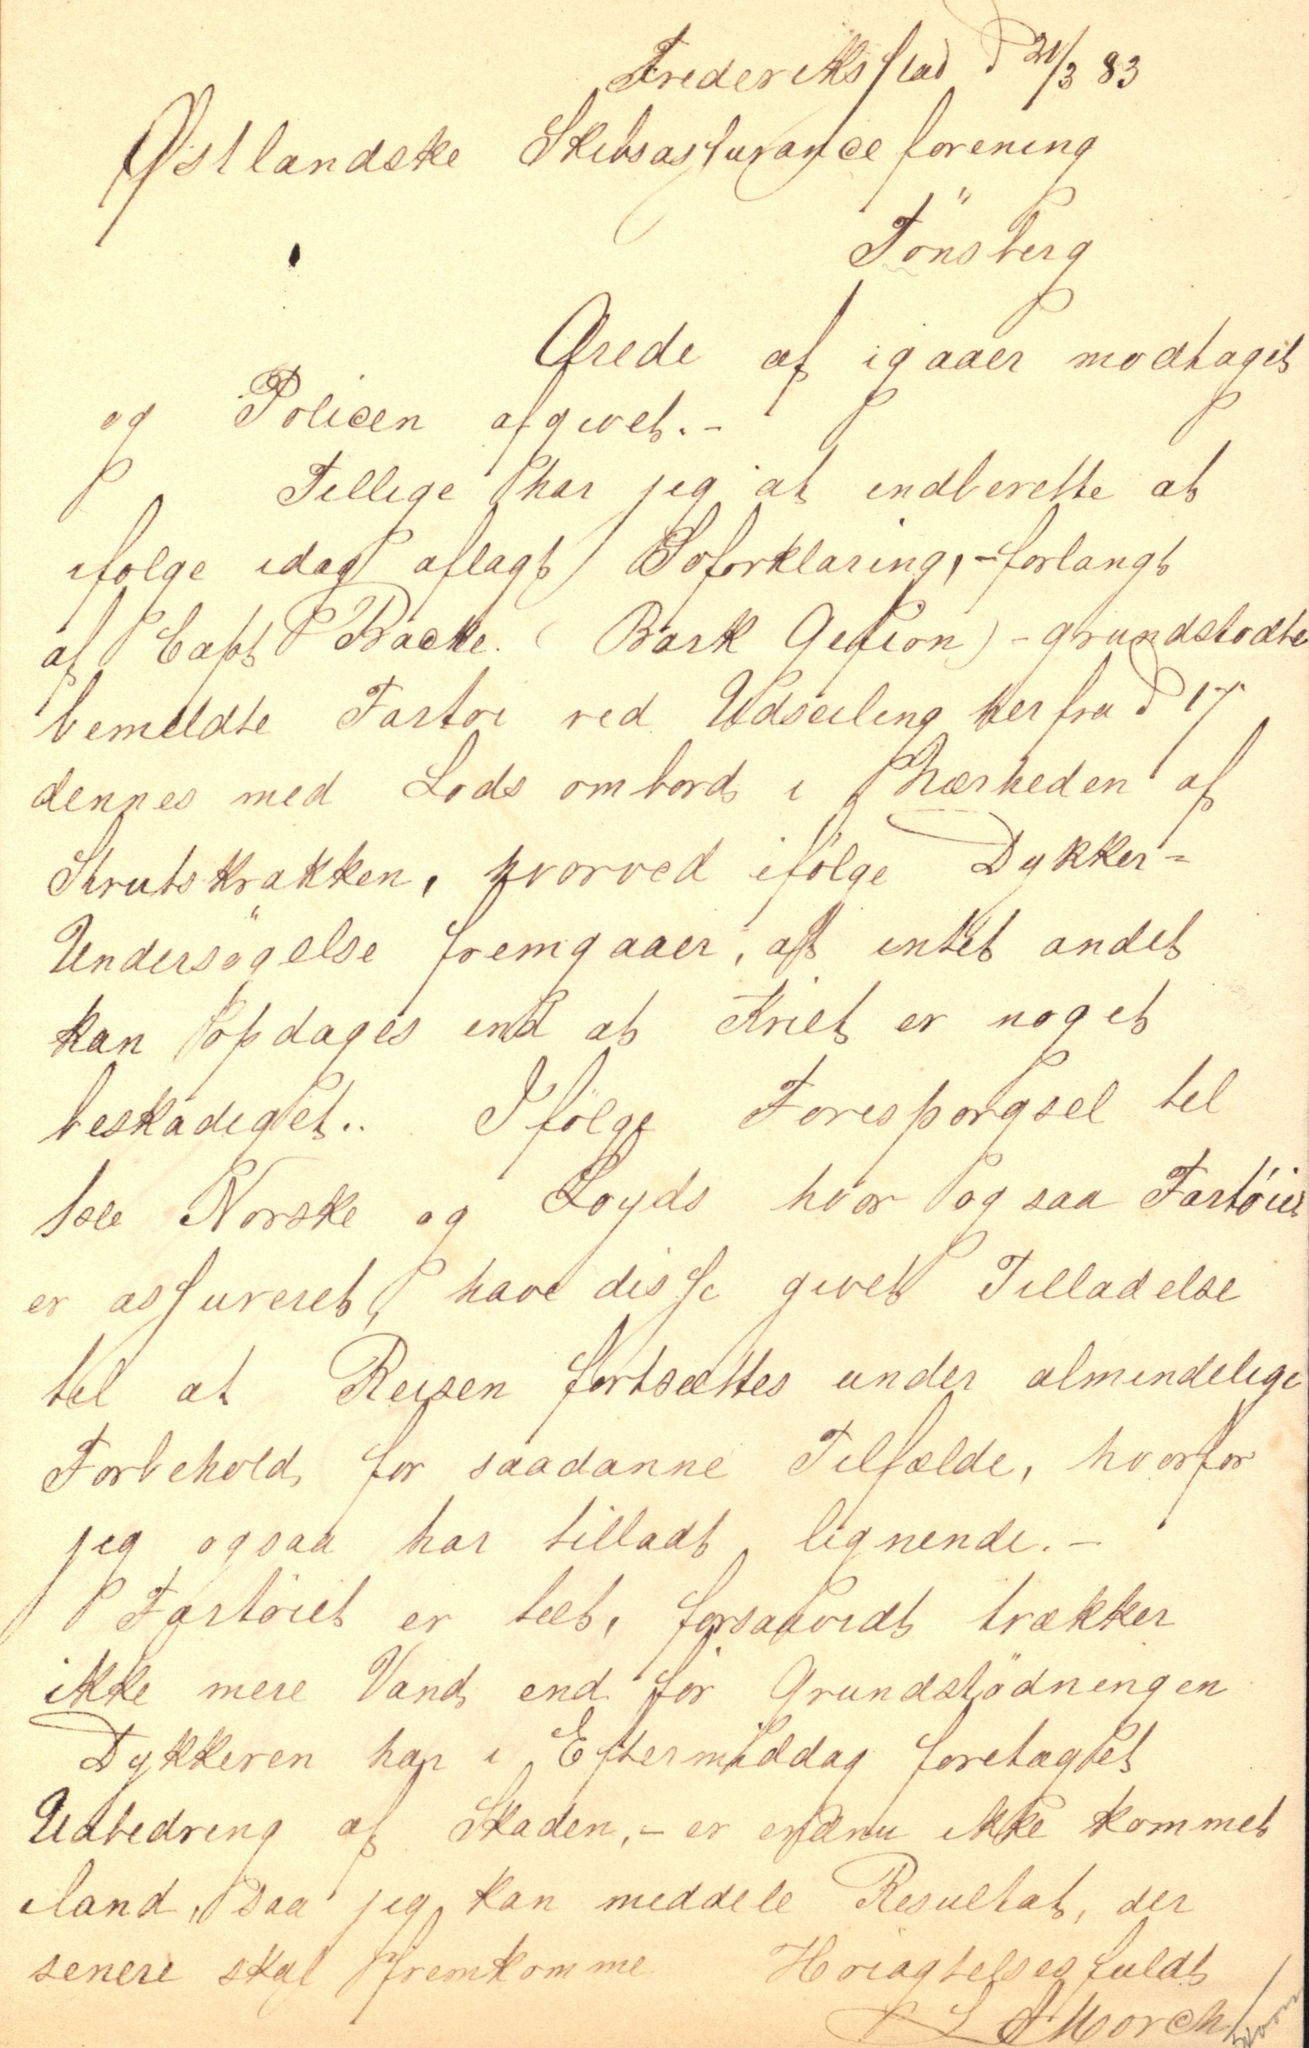 Frederiksstad d 21/3 83
Østlandske Skibsassuranceforening
Tönsberg
Ærede af igaaer modtaget
og Policen afgivet. -
Tillige har jeg at indberette at
ifolge idag aflagt Soforklaring, - forlangt
af Capt Backe. (Bark Gefion) - grundstodte
bemeldte Fartoi ved Udseiling herfra d 17
dennes med Lods ombord i Nærheden af
Strutskrakken, hvorved ifölge Dykker=
Undersögelse fremgaaer, at intet andet
kan opdages end at Kriet er noget
beskadiget.. Ifölge Foresporgsel til
det Norske og Loyds hvor ogsaa Fartöiet
er assureret, have disse givet Tilladelse
til at Reisen fortsættes under almindelige
Forbehold for saadanne Tilfælde, hvorfor
jeg ogsaa har tilladt lignende. -
Fartöiet er tæt, forsaavidt trækker
ikke mere Vand end för Grundstödningen
Dykkeren har i Eftermiddag foretaget
Udbedring af Skaden, - er endnu ikke kommet
iland, saa jeg kan meddele Resultat, der
senere skal fremkomme Hoiagtelsesfuldt
Morch